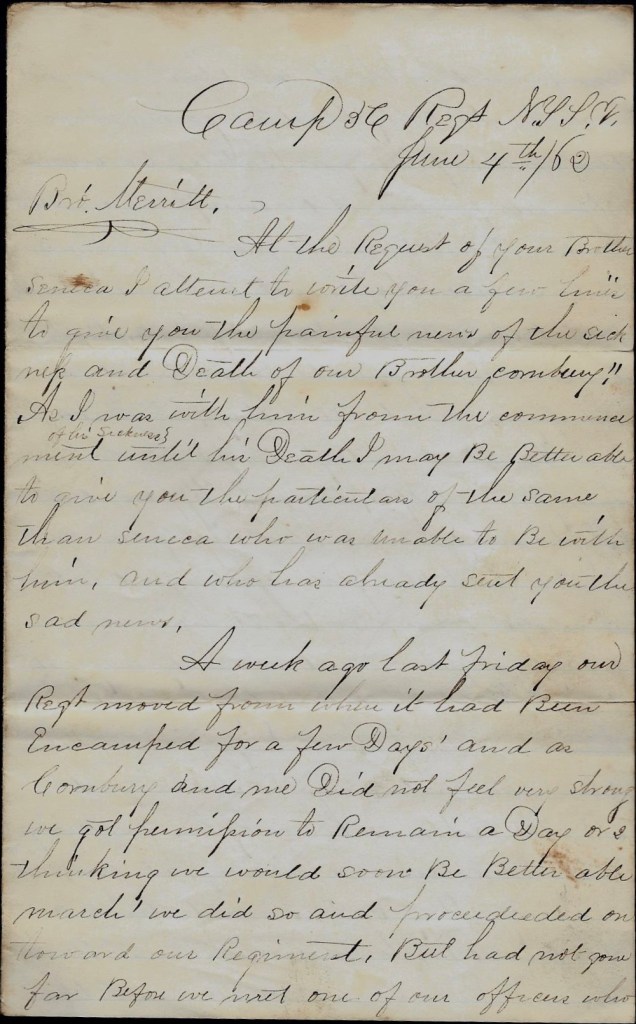 Camp 56 Regt N.Y.S.V.
June 4th /62
Bro. Merritt.
At the Request of your Brother
Seneca I attempt to write you a few lines
to give you the painful news of the sick
ness and Death of our Brother Cornbury!!
As I was with him from the commence
of his Sickness}
ment until his Death I may Be Better able
to give you the particulars of the same
than Seneca who was unable to Be with
him, and who has already sent you the
sad news.
A week ago last friday our
Regt moved from when it had Been
Encamped for a few Days' and as
Cornbury and me Did not feel very strong
we got permission to Remain a Day or 2
thinking we would soon Be Better able
march' we did so and proceedeeded on
toward our Regiment, But had not gone
far Before we met one of our officers who